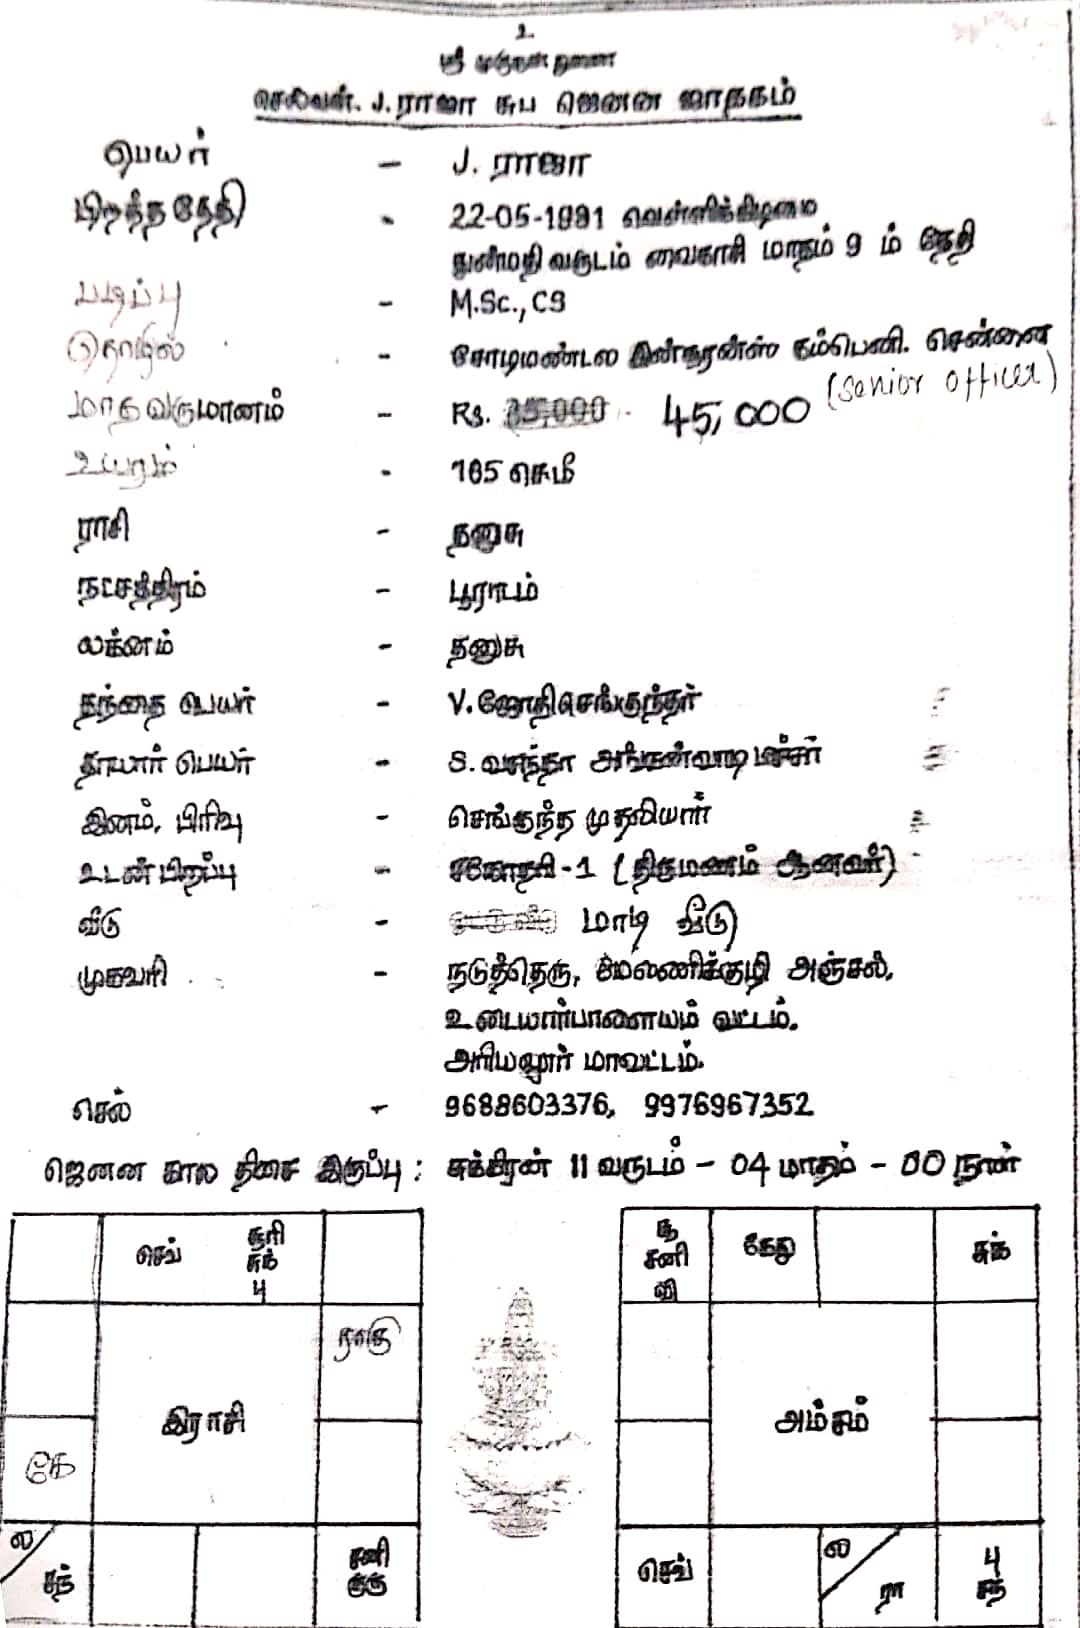 உ
ஸ்ரீ முருகன் துணை
செல்வன். J. ராஜா சுப ஜெனன ஜாதகம்
பெயர் - J. ராஜா
பிறந்த தேதி - 22-05-1981 வெள்ளிக்கிழமை
துன்மதி வருடம் வைகாசி மாதம் 9 ம் தேதி
படிப்பு - M.Sc., CS
தொழில் - சோழமண்டல இன்சூரன்ஸ் கம்பெனி. சென்னை
(Senior Officer)
மாதவருமானம் - Rs. 45,000
உயரம் - 165 செ.மீ
ராசி - தனுசு
நட்சத்திரம் - பூராடம்
லக்னம் - தனுசு
தந்தை பெயர் - V. ஜோதிசெங்குந்தர்
தாயார் பெயர் - S. வசந்தா அங்கன்வாடி டீச்சர்
இனம், பிரிவு - செங்குந்த முதலியார்
உடன்பிறப்பு - சகோதரி - 1 (திருமணம் ஆனவர்)
வீடு - மாடி வீடு
முகவரி - நடுத்தெரு, மேலணிக்குழி அஞ்சல்,
உடையார்பாளையம் வட்டம்.
அரியலூர் மாவட்டம்.
செல் - 9688603376, 9976967352
ஜெனன கால திசை இருப்பு : சுக்கிரன் 11 வருடம் - 04 மாதம் - 00 நாள்
செவ்
சூரி
சுக்
பு
ராகு
இராசி
கே
ல
சந்
சனி
குரு
சூ
சனி
வி
கேது
சுக்
அம்சம்
செவ்
ல
ரா
பு
சந்